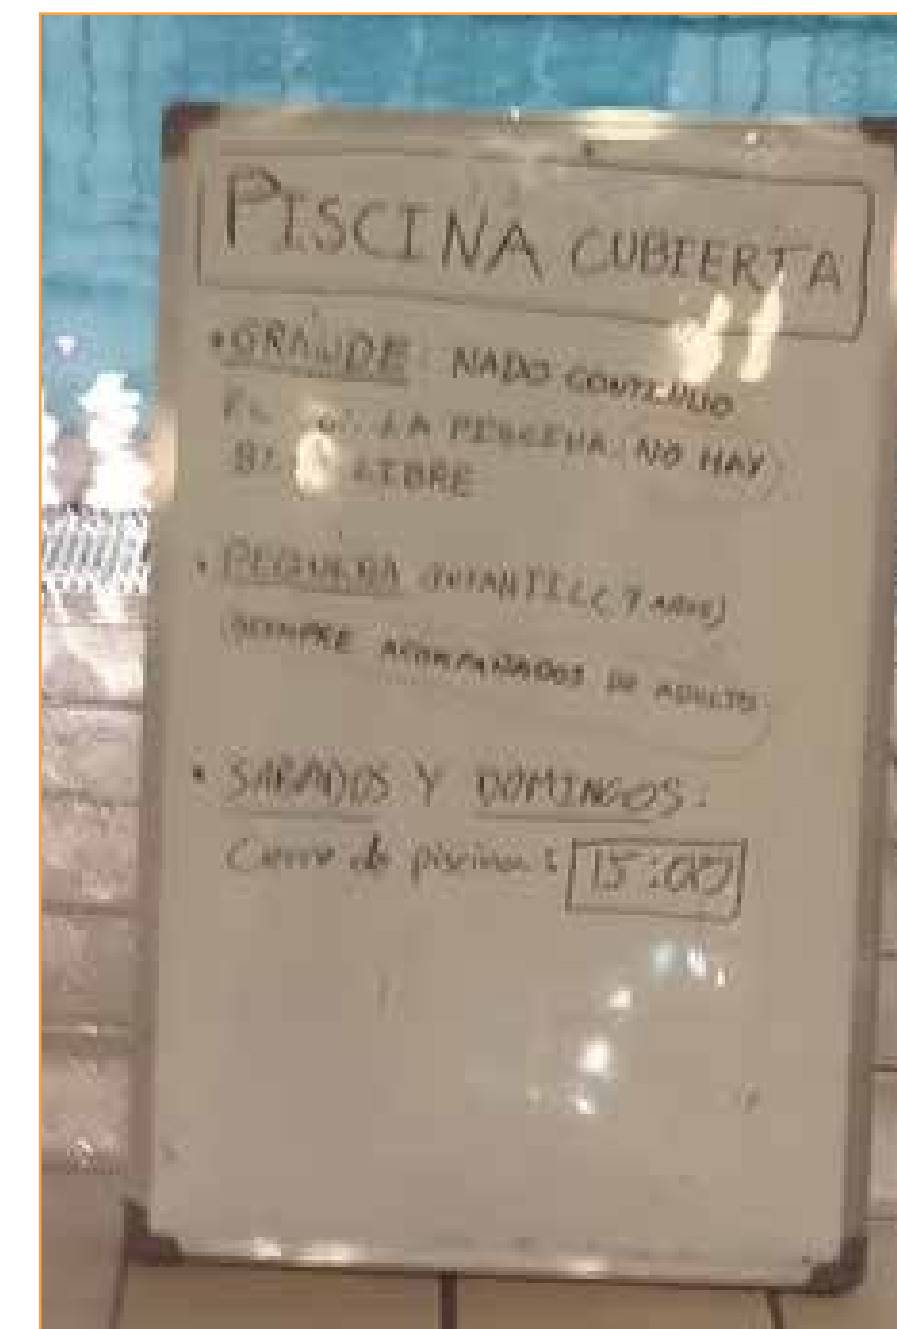 PISCINA CUBIERTA
• GRANDE: NADO CONTINUO
LA PISCINA. NO HAY
LIBRE
• PEQUEÑA INFANTIL (7 AÑOS)
(SIEMPRE ACOMPAÑADOS DE ADULTO
• SABADOS Y DOMINGOS:
Cierre de piscina: 15:00